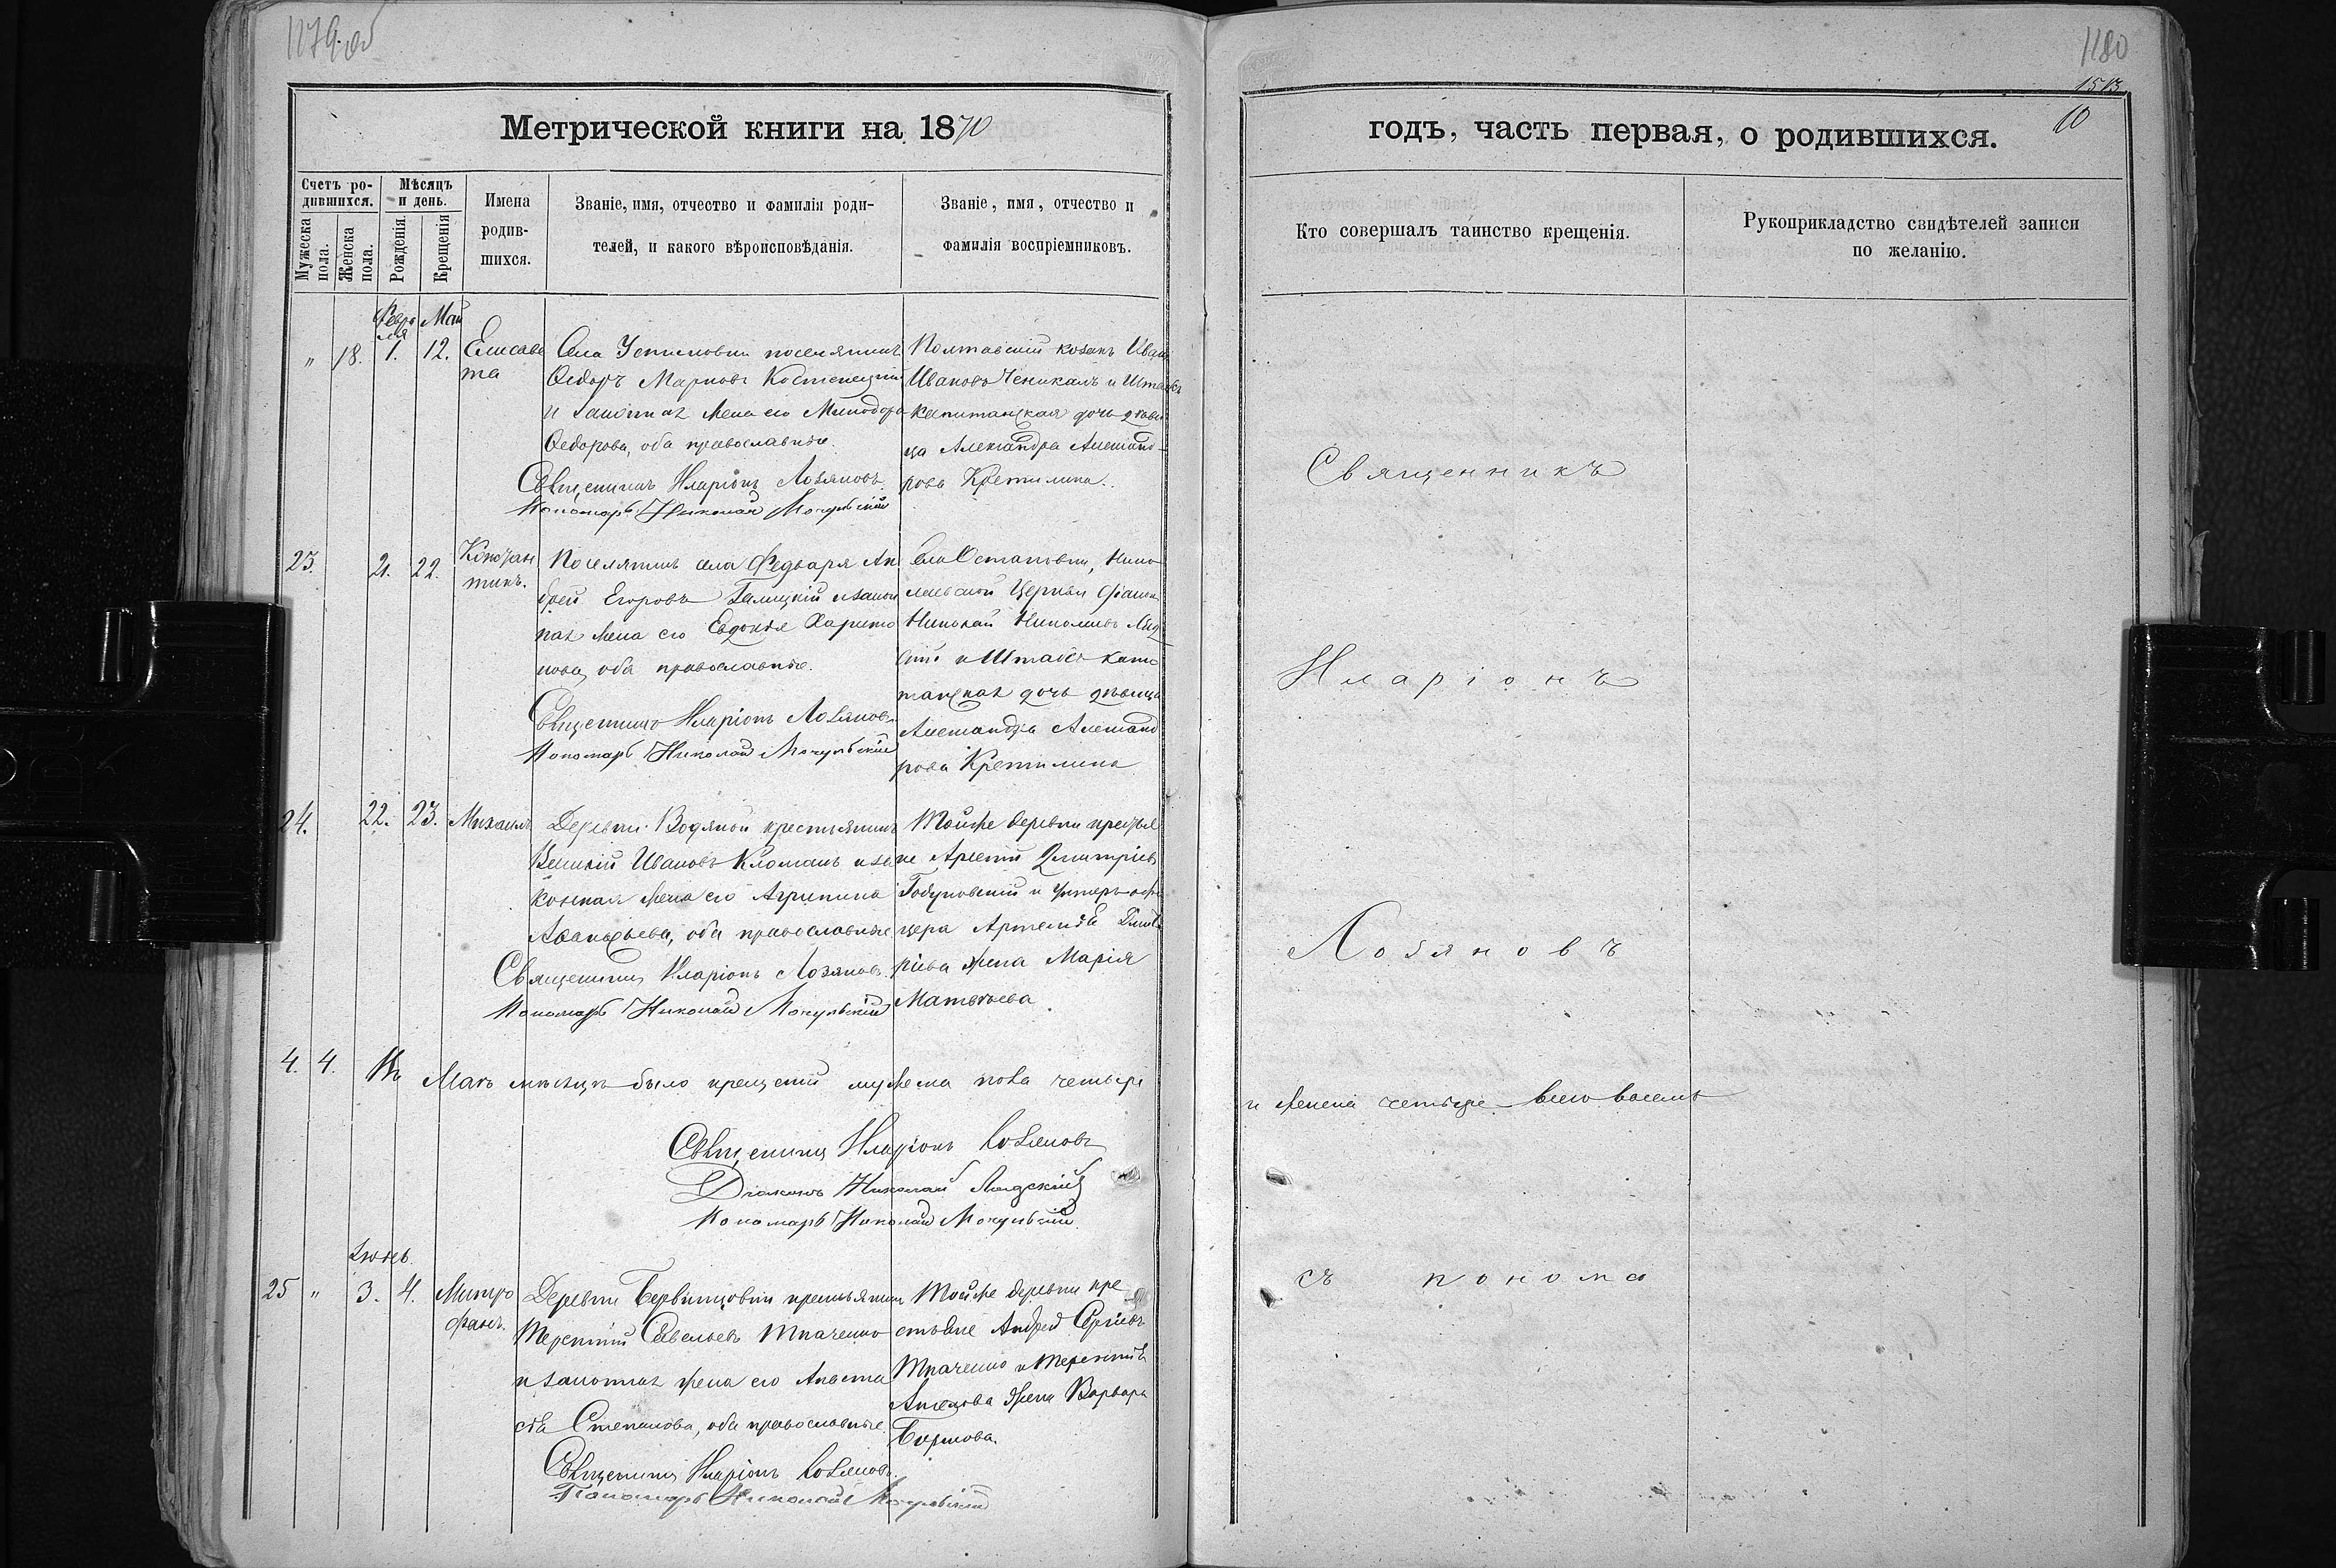 1179 об
Метрической книги на 1870
Счетъ родившихся.
Мужеска пола.
Женска пола.
Мѣсяцъ и день.
Рожденія.
Крещенія
Имена родившихся.
Званіе, имя, отчество и фамилія родителей, и какого вѣроисповѣданія.
Званіе, имя, отчество и фамилія воспріемниковъ.
Февраля Май
" 18. 1. 12. Елисавета
Села поселянинъ
Ѳедоръ Марковъ Костенецкій
и законная жена его Минодора
Ѳедорова, оба православные.
Священникъ Иларіонъ Лозяновъ
Пономарь Николай Мокульскій
Полтавскій козакъ Иванъ
Ивановъ и Штабсъ
капитанская дочь дѣви
ца Александра Александ-
рова Кретилина.
23. 21. 22. Констан
тинъ.
Поселянинъ села Федваря Ан
дрей Егоровъ Галицкій и закон
ная жена его Евдокія Харито
нова, оба православные.
Священникъ Иларіонъ Лозяновъ
Пономарь Николай Мокульскій
Села Николаевской Церкви діаконъ
Николай Николаевъ
и Штабсъ капи
танская дочь дѣвица
Александра Александ
рова Кретилина
24. 22. 23. Михаилъ
Деревни Водяной крестьянинъ
Ивановъ и за
конная жена его Агрипина
Аѳанасьева, оба православные
Священникъ Иларіонъ Лозяновъ
Пономарь Николай Мокульскій
Тойже деревни крестья
не Арсеній Димитріевъ
Годуновскій и Унтеръ-офи
цера Артемія Димит
ріева жена Марія
Матѳѣева
4. 4. Въ Маѣ мѣсяцѣ было крещеній мужеска пола четыре
Священникъ Иларіонъ Лозяновъ
Діаконъ Николай Лядскій
Пономарь Николай Мокульскій
Іюнь.
25 " 3. 4. Митро
фанъ.
Деревни крестьянинъ
Терентій Савельевъ Ткаченко
и законная жена его Анаста
сія Степанова, оба православные
Священникъ Иларіонъ Лозяновъ
Пономарь Николай Мокульскій
Тойже деревни кре
стьяне Андрей Сергіевъ
Ткаченко и Терентія
жена Варвара
1180
1513
10
годъ, часть первая, о родившихся.
Кто совершалъ таинство крещенія.
Рукоприкладство свидѣтелей записи по желанію.
Священникъ
Иларіонъ
Лозяновъ
и женска четыре всего восемь
съ понома